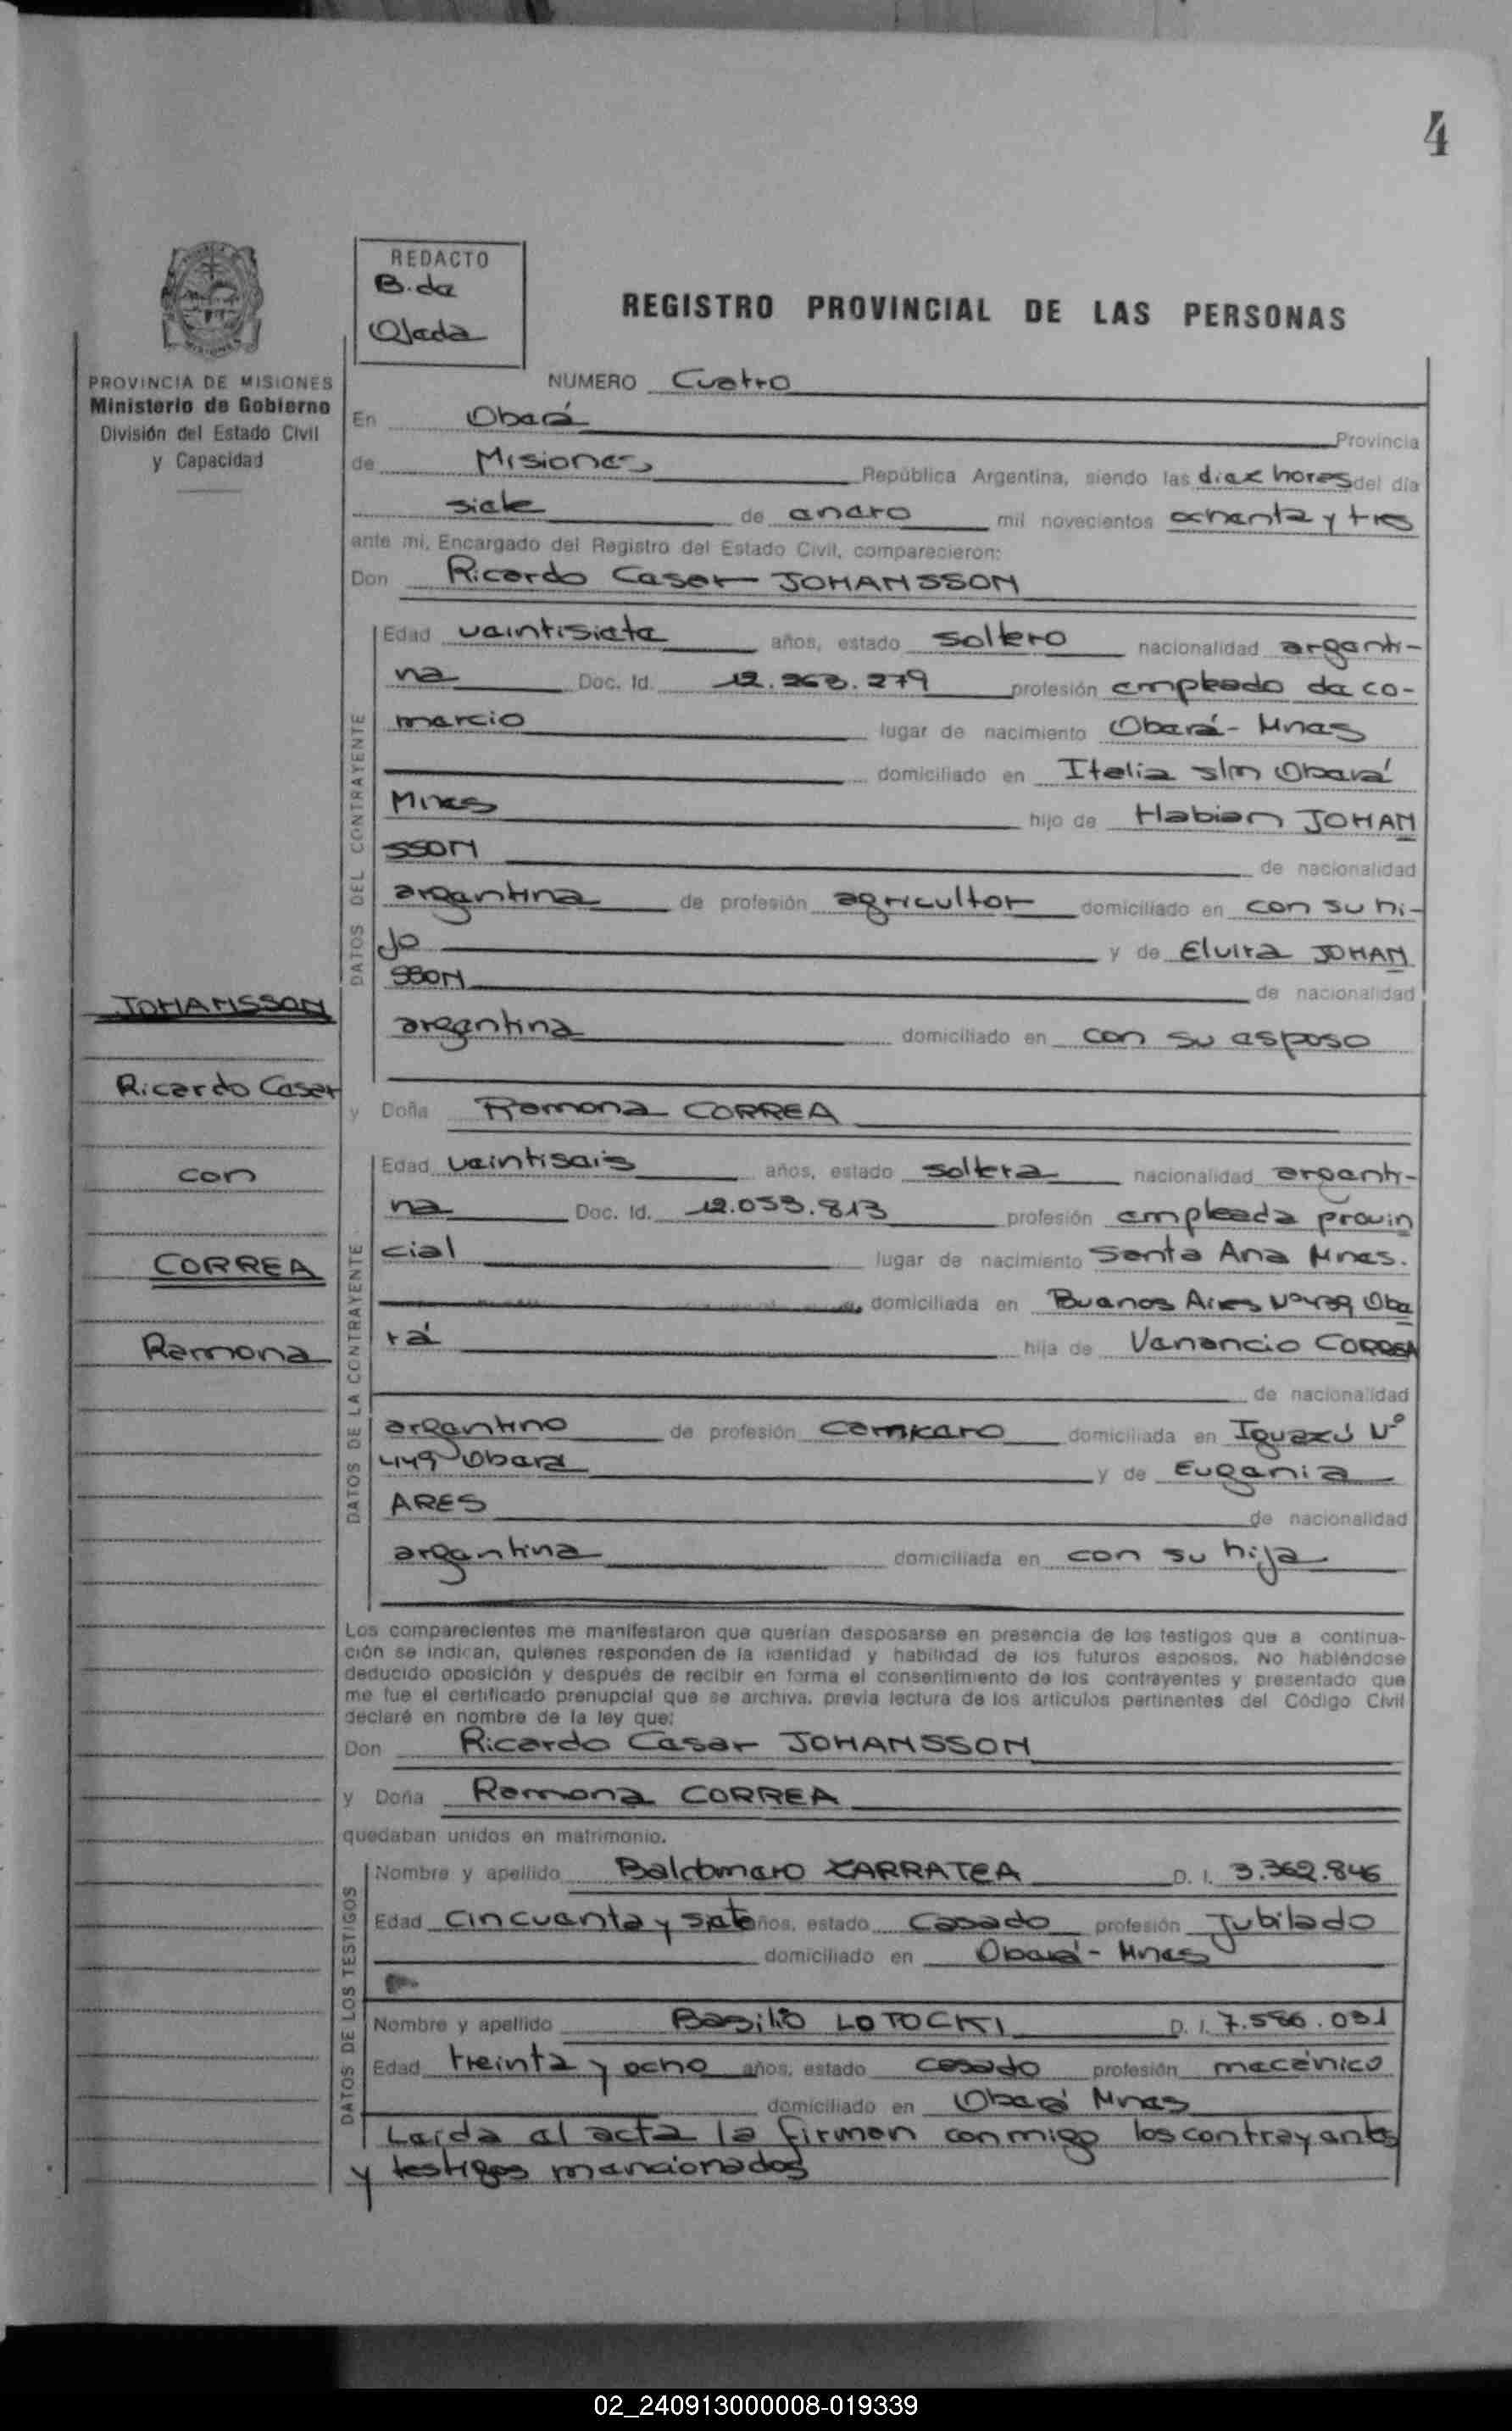 4
REDACTO
B. de
Ojeda
REGISTRO PROVINCIAL DE LAS PERSONAS
PROVINCIA DE MISIONES
Ministerio de Gobierno
División del Estado Civil
y Capacidad
NUMERO Cuatro
En Oberá Provincia
de Misiones República Argentina, siendo las diez horas del día
siete de enero mil novecientos ochenta y tres
ante mi, Encargado del Registro del Estado Civil, comparecieron:
Don Ricardo Cesar JOHANSSON
DATOS DEL CONTRAYENTE
Edad veintisiete años, estado soltero nacionalidad argenti-
na Doc. Id. profesión empleado de co-
mercio lugar de nacimiento Oberá - Mnes
domiciliado en Italia s/n Oberá
Mnes hijo de Habian JOHAN
SSON de nacionalidad
argentina de profesión agricultor domiciliado en con su hi-
jo y de Elvira JOHAN
SSON de nacionalidad
argentina domiciliado en con su esposo
JOHANSSON
Ricardo Cesar
con
CORREA
Ramona
y Doña Ramona CORREA
DATOS DE LA CONTRAYENTE
Edad veintiseis años, estado soltera nacionalidad argenti-
na Doc. Id. 12.053.813 profesión empleada provin
cial lugar de nacimiento Santa Ana Mnes.
domiciliada en Buenos Aires Nº 439 Obe
rá hija de Venancio CORREA
de nacionalidad
argentino de profesión domiciliada en Iguazú Nº
449 Obera y de Eugenia
ARES de nacionalidad
argentina domiciliada en con su hija
Los comparecientes me manifestaron que querían desposarse en presencia de los testigos que a continua-
ción se indican, quienes responden de la identidad y habilidad de los futuros esposos. No habiéndose
deducido oposición y después de recibir en forma el consentimiento de los contrayentes y presentado que
me fue el certificado prenupcial que se archiva, previa lectura de los artículos pertinentes del Código Civil
declaré en nombre de la ley que:
Don Ricardo Cesar JOHANSSON
y Doña Ramona CORREA
quedaban unidos en matrimonio.
DATOS DE LOS TESTIGOS
Nombre y apellido Baldomero XARRATEA D. I. 3.362.846
Edad cincuenta y siete años, estado Casado profesión Jubilado
domiciliado en Oberá - Mnes
Nombre y apellido Basilio LOTOCKI D. I. 7.586.031
Edad treinta y ocho años, estado casado profesión mecánico
domiciliado en Oberá Mnes
Leida el acta la firman conmigo los contrayentes
y testigos mencionados
02_240913000008-019339